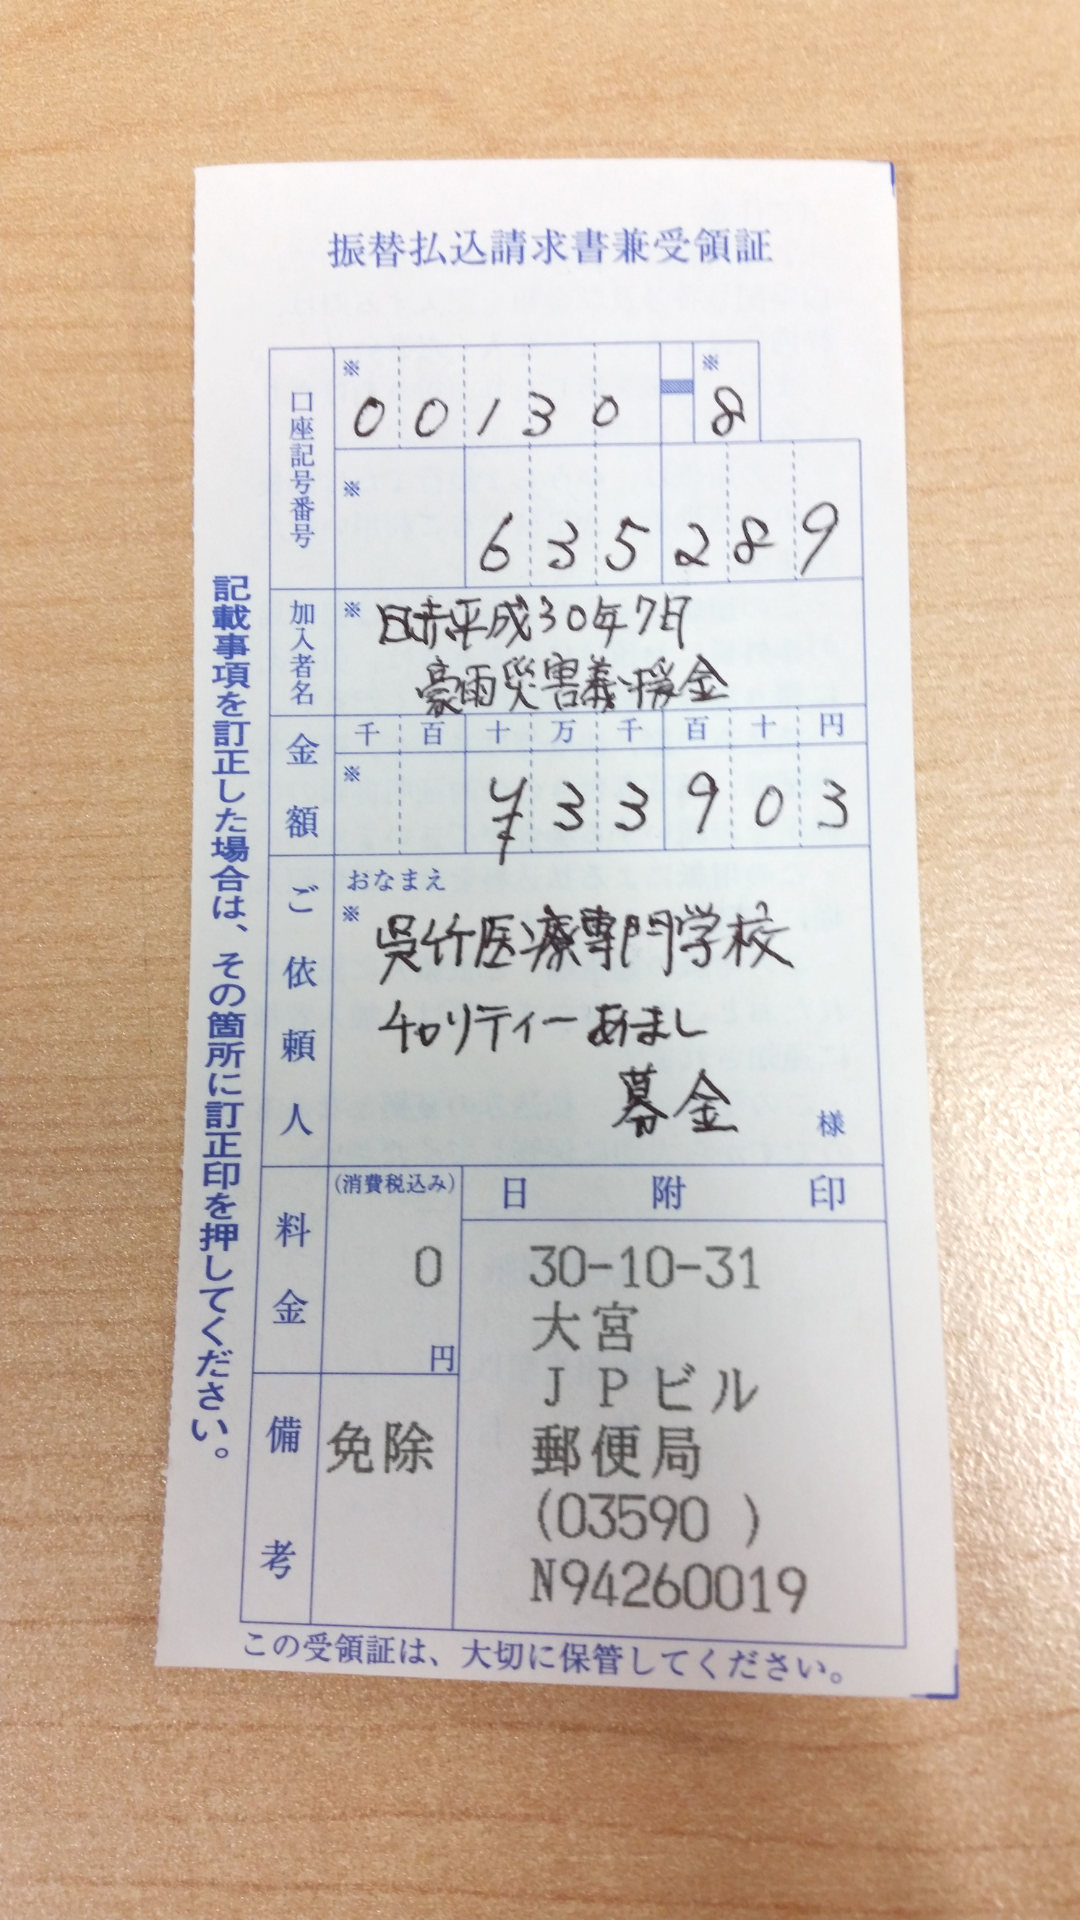 振替払込請求書兼受領証
口座記号番号
※ 00130-※8
※ 635289
加入者名
※ 日赤平成30年7月
豪雨災害義援金
金額
千 百 十 万 千 百 十 円
※ ¥33903
ご依頼人
おなまえ
※ 呉竹医療専門学校
チャリティーあまし
募金 様
料金
(消費税込み)
0
円
備考
免除
日附印
30-10-31
大宮
JPビル
郵便局
(03590 )
N94260019
この受領証は、大切に保管してください。
記載事項を訂正した場合は、その箇所に訂正印を押してください。